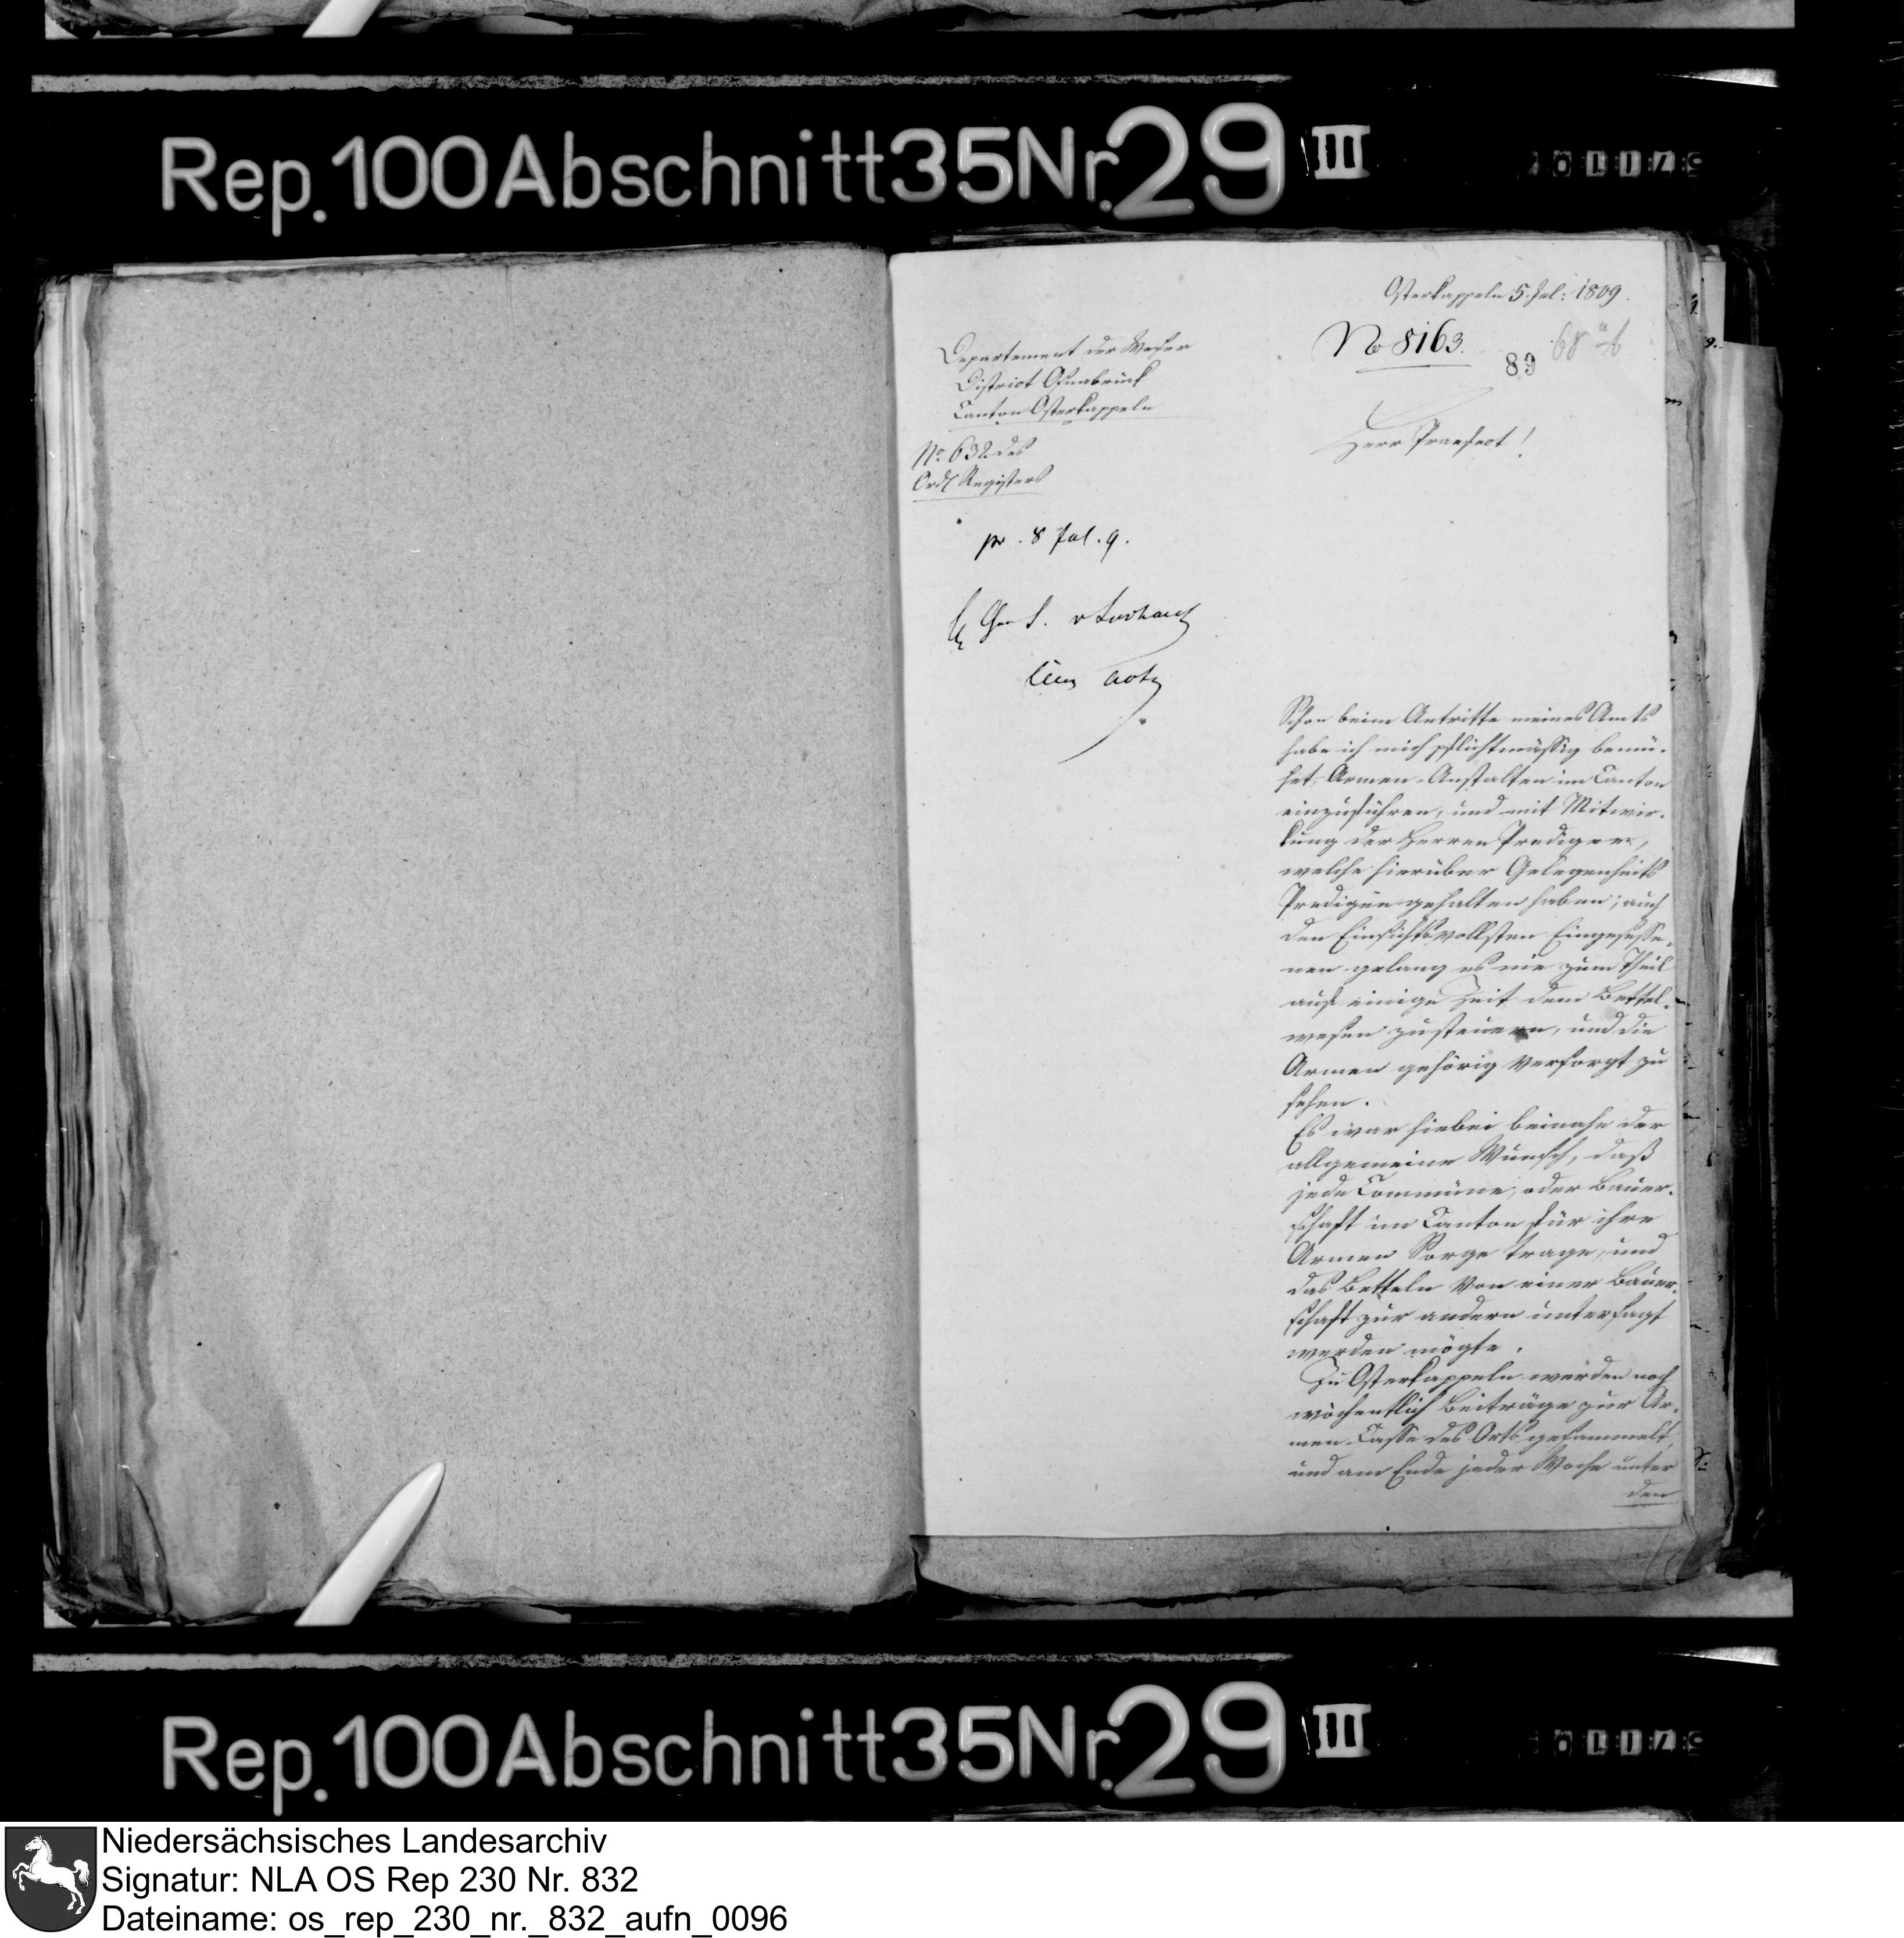 Rep. 100 Abschnitt 35 Nr. 29 III
Osterkappeln 5. Jul: 1809.
No 8163.
89
68
Departement der Weser
District Osnabrück
Canton Osterkappeln
No. 632 des
Ord. Registers
Herr Praefect!
pr. 8 Jul. 9.
cum actis
Schon beim Antritte meines Amts
habe ich mich pflichtmässig bemü-
het, Armen-Anstalten im Canton
einzuführen, und mit Mitwir-
kung der Herren Prediger,
welche hierüber Gelegenheits
Predigen gehalten haben; auch
den Einsichtsvollsten Eingesesse-
nen gelang es nie zum Theil
auf einige Zeit dem Bettel-
wesen zu steuern, und die
Armen gehörig versorgt zu
sehen.
Es war hiebei beinahe der
allgemeine Wunsch, daß
jede Commüne, oder Bauer-
schaft im Canton für ihre
Armen Sorge trage, und
das Betteln von einer Bauer-
schaft zur andern untersagt
werden mögte.
Zu Osterkappeln werden noch
wöchentlich Beiträge zur Ar-
men-Casse des Orts gesammelt,
und am Ende jeder Woche unter
den
Rep. 100 Abschnitt 35 Nr. 29 III
Niedersächsisches Landesarchiv
Signatur: NLA OS Rep 230 Nr. 832
Dateiname: os_rep_230_nr._832_aufn_0096